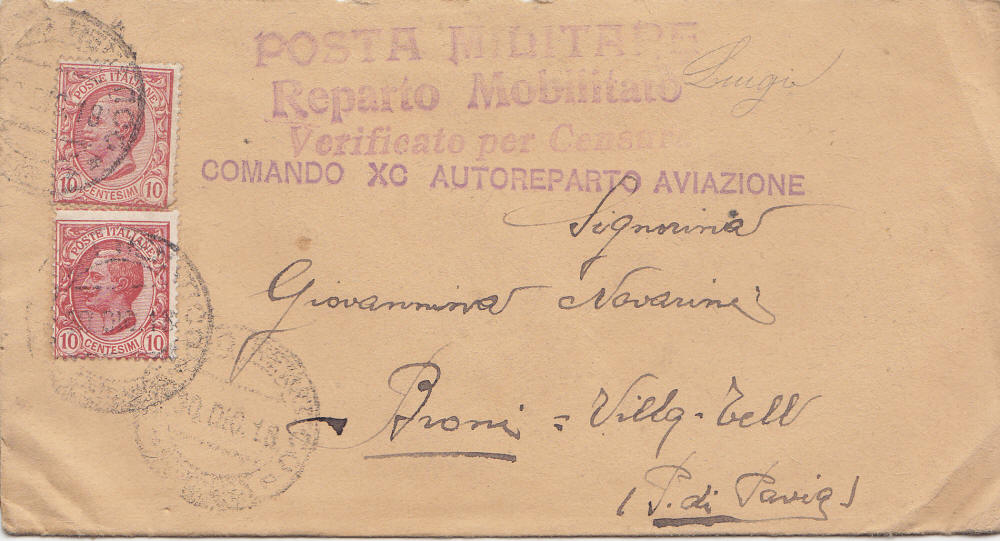 POSTA MILITARE
Reparto Mobilitato
Verificato per Censura
COMANDO XC AUTOREPARTO AVIAZIONE
Luigi
POSTE ITALIANE
10 CENTESIMI 10
POSTE ITALIANE
10 CENTESIMI 10
Signorina
Giovannina Novarini
Broni = Villa - Tell
(P. di Pavia)
DIC. 18